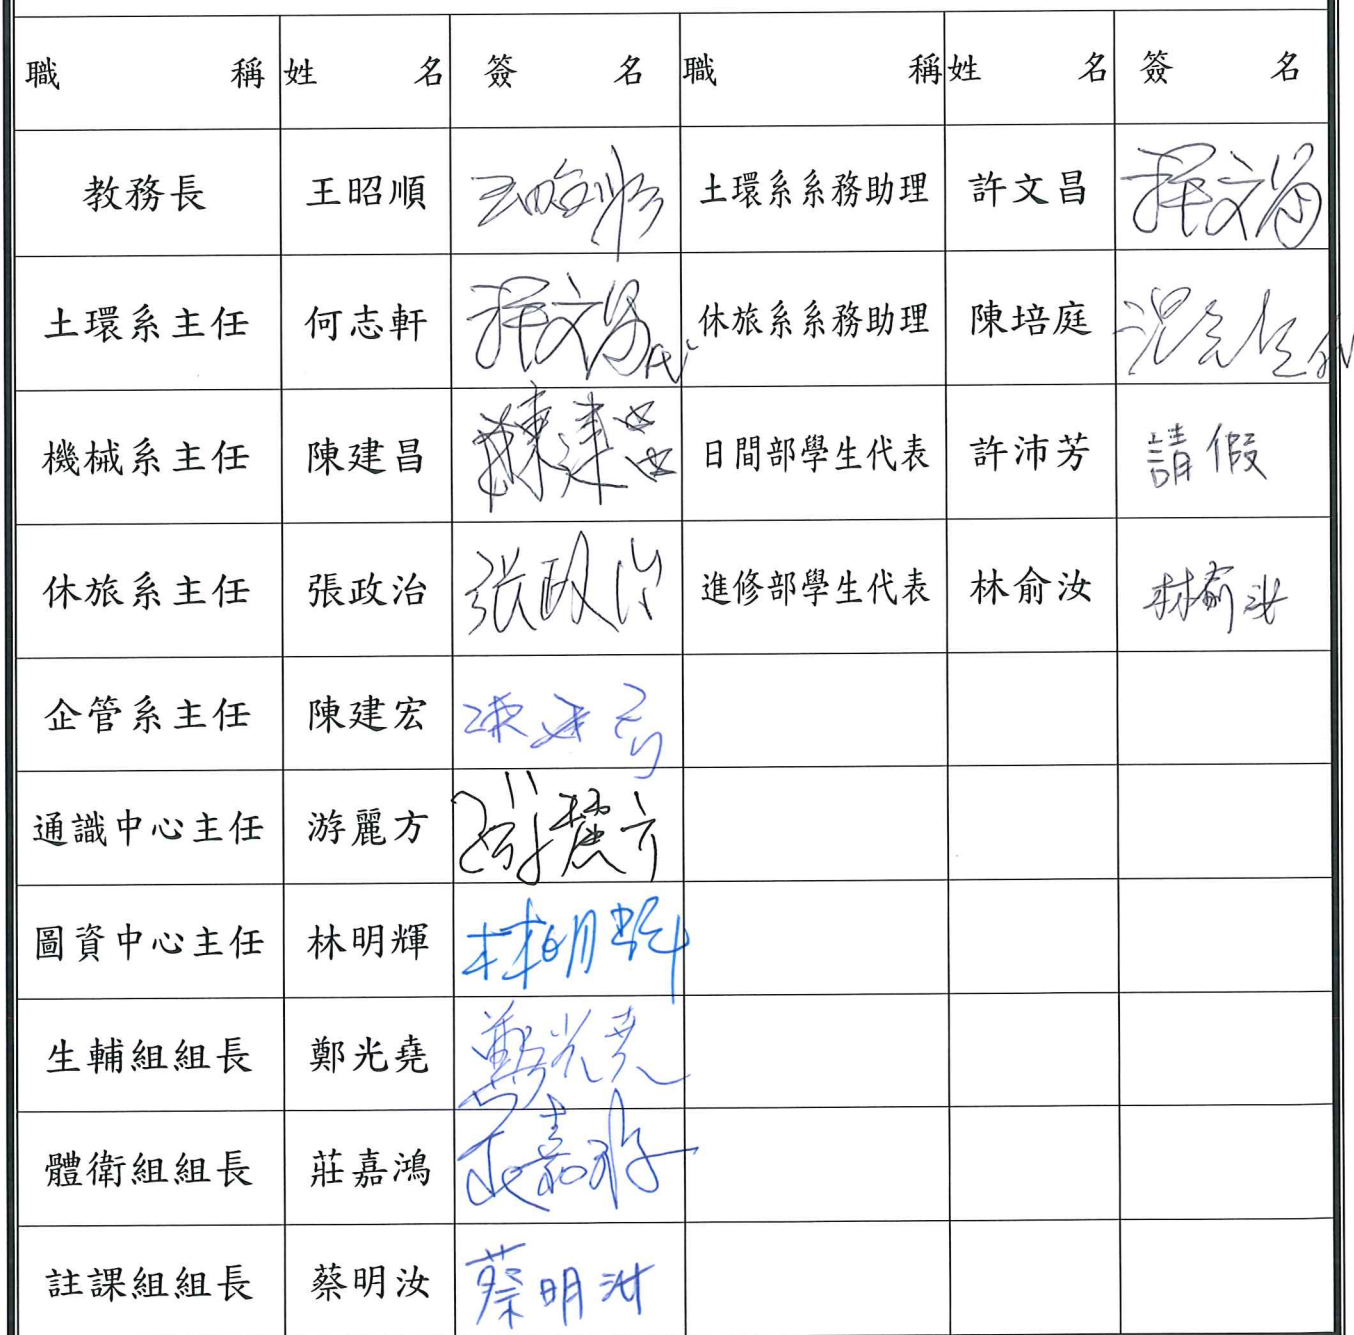 職稱 姓名 簽名 職稱 姓名 簽名
教務長 王昭順 土環系系務助理 許文昌 許文昌
土環系主任 何志軒 許文昌代 休旅系系務助理 陳培庭
機械系主任 陳建昌 陳建昌 日間部學生代表 許沛芳 請假
休旅系主任 張政治 張政治 進修部學生代表 林俞汝 林俞汝
企管系主任 陳建宏 陳建宏
通識中心主任 游麗方 游麗方
圖資中心主任 林明輝 林明輝
生輔組組長 鄭光堯 鄭光堯
體衛組組長 莊嘉鴻 莊嘉鴻
註課組組長 蔡明汝 蔡明汝